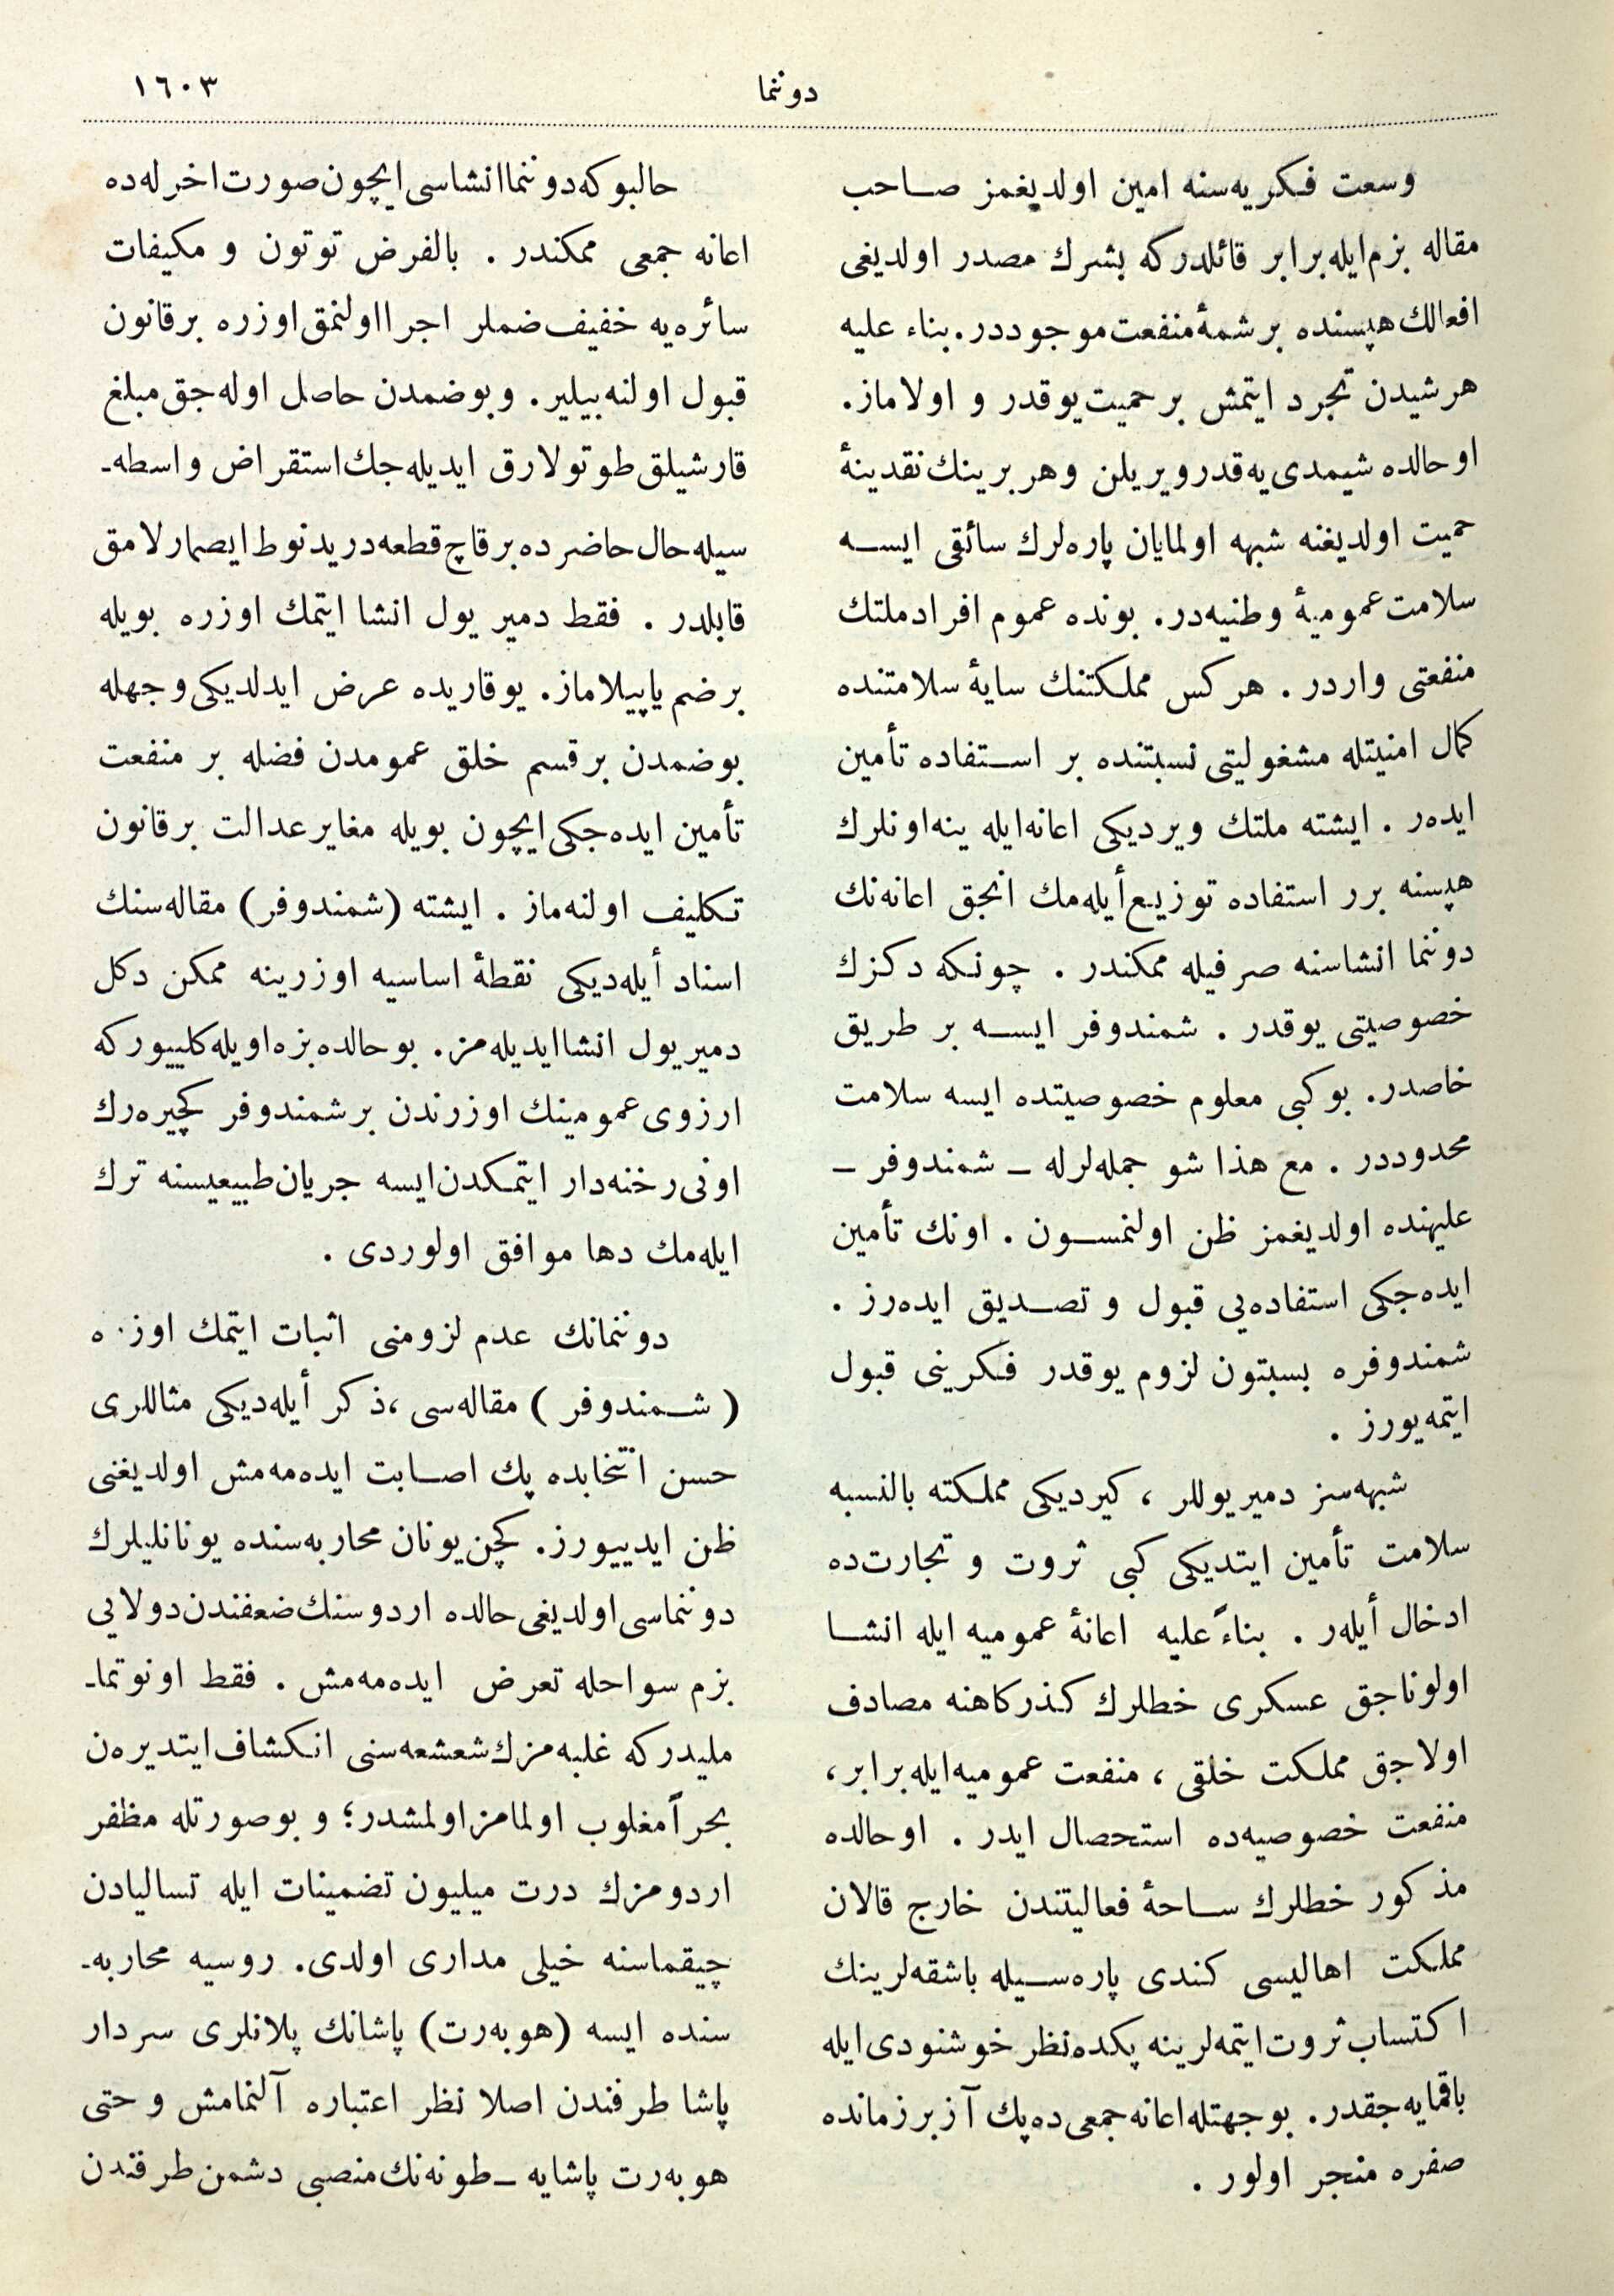 دوننما
١٦٠٣
وسعت فكریه‌سنه امین اولدیغمز صاحب
مقاله بزم ایله برابر قائلدركه بشرك مصدر اولدیغی
افعالك هپسنده بر شمهٔ منفعت موجوددر. بناء علیه
هر شیدن تجرد ایتمش بر حمیت یوقدر و اولاماز.
اوحالده شیمدی‌یه قدر ویریلن وهر برینك نقدینهٔ
حمیت اولدیغنه شبهه اولمایان پاره‌لرك سائقی ایسه
سلامت عمومیهٔ وطنیه‌در. بونده عموم افراد ملتك
منفعتی واردر . هركس مملكتنك سایهٔ سلامتنده
كمال امنیتله مشغولیتی نسبتنده بر استفاده تأمین
ایده‌ر . ایشته ملتك ویردیكی اعانه ایله ینه اونلرك
هپسنه برر استفاده توزیع أیله‌مك انجق اعانه‌نك
دوننما انشاسنه صرفیله ممكندر . چونكه دكزك
خصوصیتی یوقدر . شمندوفر ایسه بر طریق
خاصدر. بو كبی معلوم خصوصیتده ایسه سلامت
محدوددر . مع هذا شو جمله‌لرله ـ شمندوفر ـ
علیهنده اولدیغمز ظن اولنمسون . اونك تأمین
ایده‌جكی استفاده‌یی قبول و تصدیق ایده‌رز .
شمندوفره بسبتون لزوم یوقدر فكرینی قبول
ایتمه‌یورز .
شبهه‌سز دمیر یوللر ، كیردیكی مملكته بالنسبه
سلامت تأمین ایتدیكی كبی ثروت و تجارت‌ده
ادخال أیله‌ر . بناءً علیه اعانهٔ عمومیه ایله انشا
اولوناجق عسكری خطلرك كذركاهنه مصادف
اولاجق مملكت خلقی ، منفعت عمومیه ایله برابر ،
منفعت خصوصیه‌ده استحصال ایدر . اوحالده
مذكور خطلرك ساحهٔ فعالیتندن خارج قالان
مملكت اهالیسی كندی پاره‌سیله باشقه‌لرینك
اكتساب ثروت ایتمه‌لرینه پك‌ده نظر خوشنودی ایله
باقمایه‌جقدر. بو جهتله اعانه جمعی ده پك آز بر زمانده
صفره منجر اولور .
حالبوكه دوننما انشاسی ایچون صورت اخر له‌ده
اعانه جمعی ممكندر . بالفرض توتون و مكیفات
سائره‌یه خفیف ضملر اجرا اولنمق اوزره بر قانون
قبول اولنه‌بیلیر. و بو ضمدن حاصل اوله‌جق مبلغ
قارشیلق طوتولارق ایدیله‌جك استقراض واسطه‌ـ
سیله حال حاضرده بر قاچ قطعه دریدنوط ایصمارلامق
قابلدر . فقط دمیر یول انشا ایتمك اوزره بویله
بر ضم یاپیلاماز. یوقاریده عرض ایدلدیكی وجهله
بو ضمدن بر قسم خلق عمومدن فضله بر منفعت
تأمین ایده‌جكی ایچون بویله مغایر عدالت بر قانون
تكلیف اولنه‌ماز . ایشته (شمندوفر) مقاله‌سنك
اسناد أیله‌دیكی نقطهٔ اساسیه اوزرینه ممكن دكل
دمیر یول انشا ایدیله‌مز. بو حالده بزه اویله كلییوركه
ارزوی عمومینك اوزرندن بر شمندوفر كچیره‌رك
اونی رخنه‌دار ایتمكدن ایسه جریان طبیعیسنه ترك
ایله‌مك دها موافق اولوردی .
دوننمانك عدم لزومنی اثبات ایتمك اوزره
( شمندوفر ) مقاله‌سی ، ذكر أیله‌دیكی مثاللری
حسن انتخابده پك اصابت ایده‌مه‌مش اولدیغنی
ظن ایدییورز. كچن یونان محاربه‌سنده یونانلیلرك
دوننماسی اولدیغی حالده اردوسنك ضعفندن دولایی
بزم سواحله تعرض ایده‌مه‌مش . فقط اونوتماـ
ملیدركه غلبه‌مزك شعشعه‌سنی انكشاف ایتدیره‌ن
بحراً مغلوب اولمامز اولمشدر؛ و بو صورتله مظفر
اردومزك درت میلیون تضمینات ایله تسالیادن
چیقماسنه خیلی مداری اولدی. روسیه محاربه‌ـ
سنده ایسه (هوبه‌رت) پاشانك پلانلری سردار
پاشا طرفندن اصلا نظر اعتباره آلنمامش و حتی
هوبه‌رت پاشایه ـ طونه‌نك منصبی دشمن طرفندن